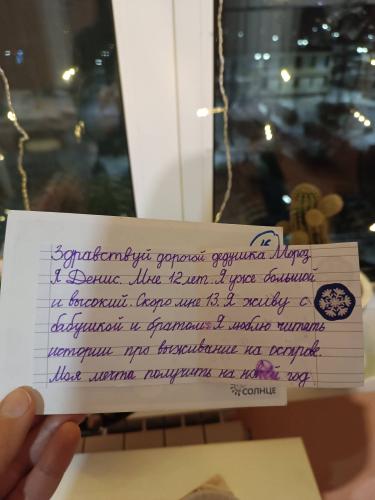 15
Здравствуй дорогой дедушка Мороз
Я Денис. Мне 12 лет. Я уже большой
и высокий. Скоро мне 13. Я живу с
бабушкой и братом. Я люблю читать
истории про выживание на острове.
Моя мечта получить на новый год
СОЛНЦЕ